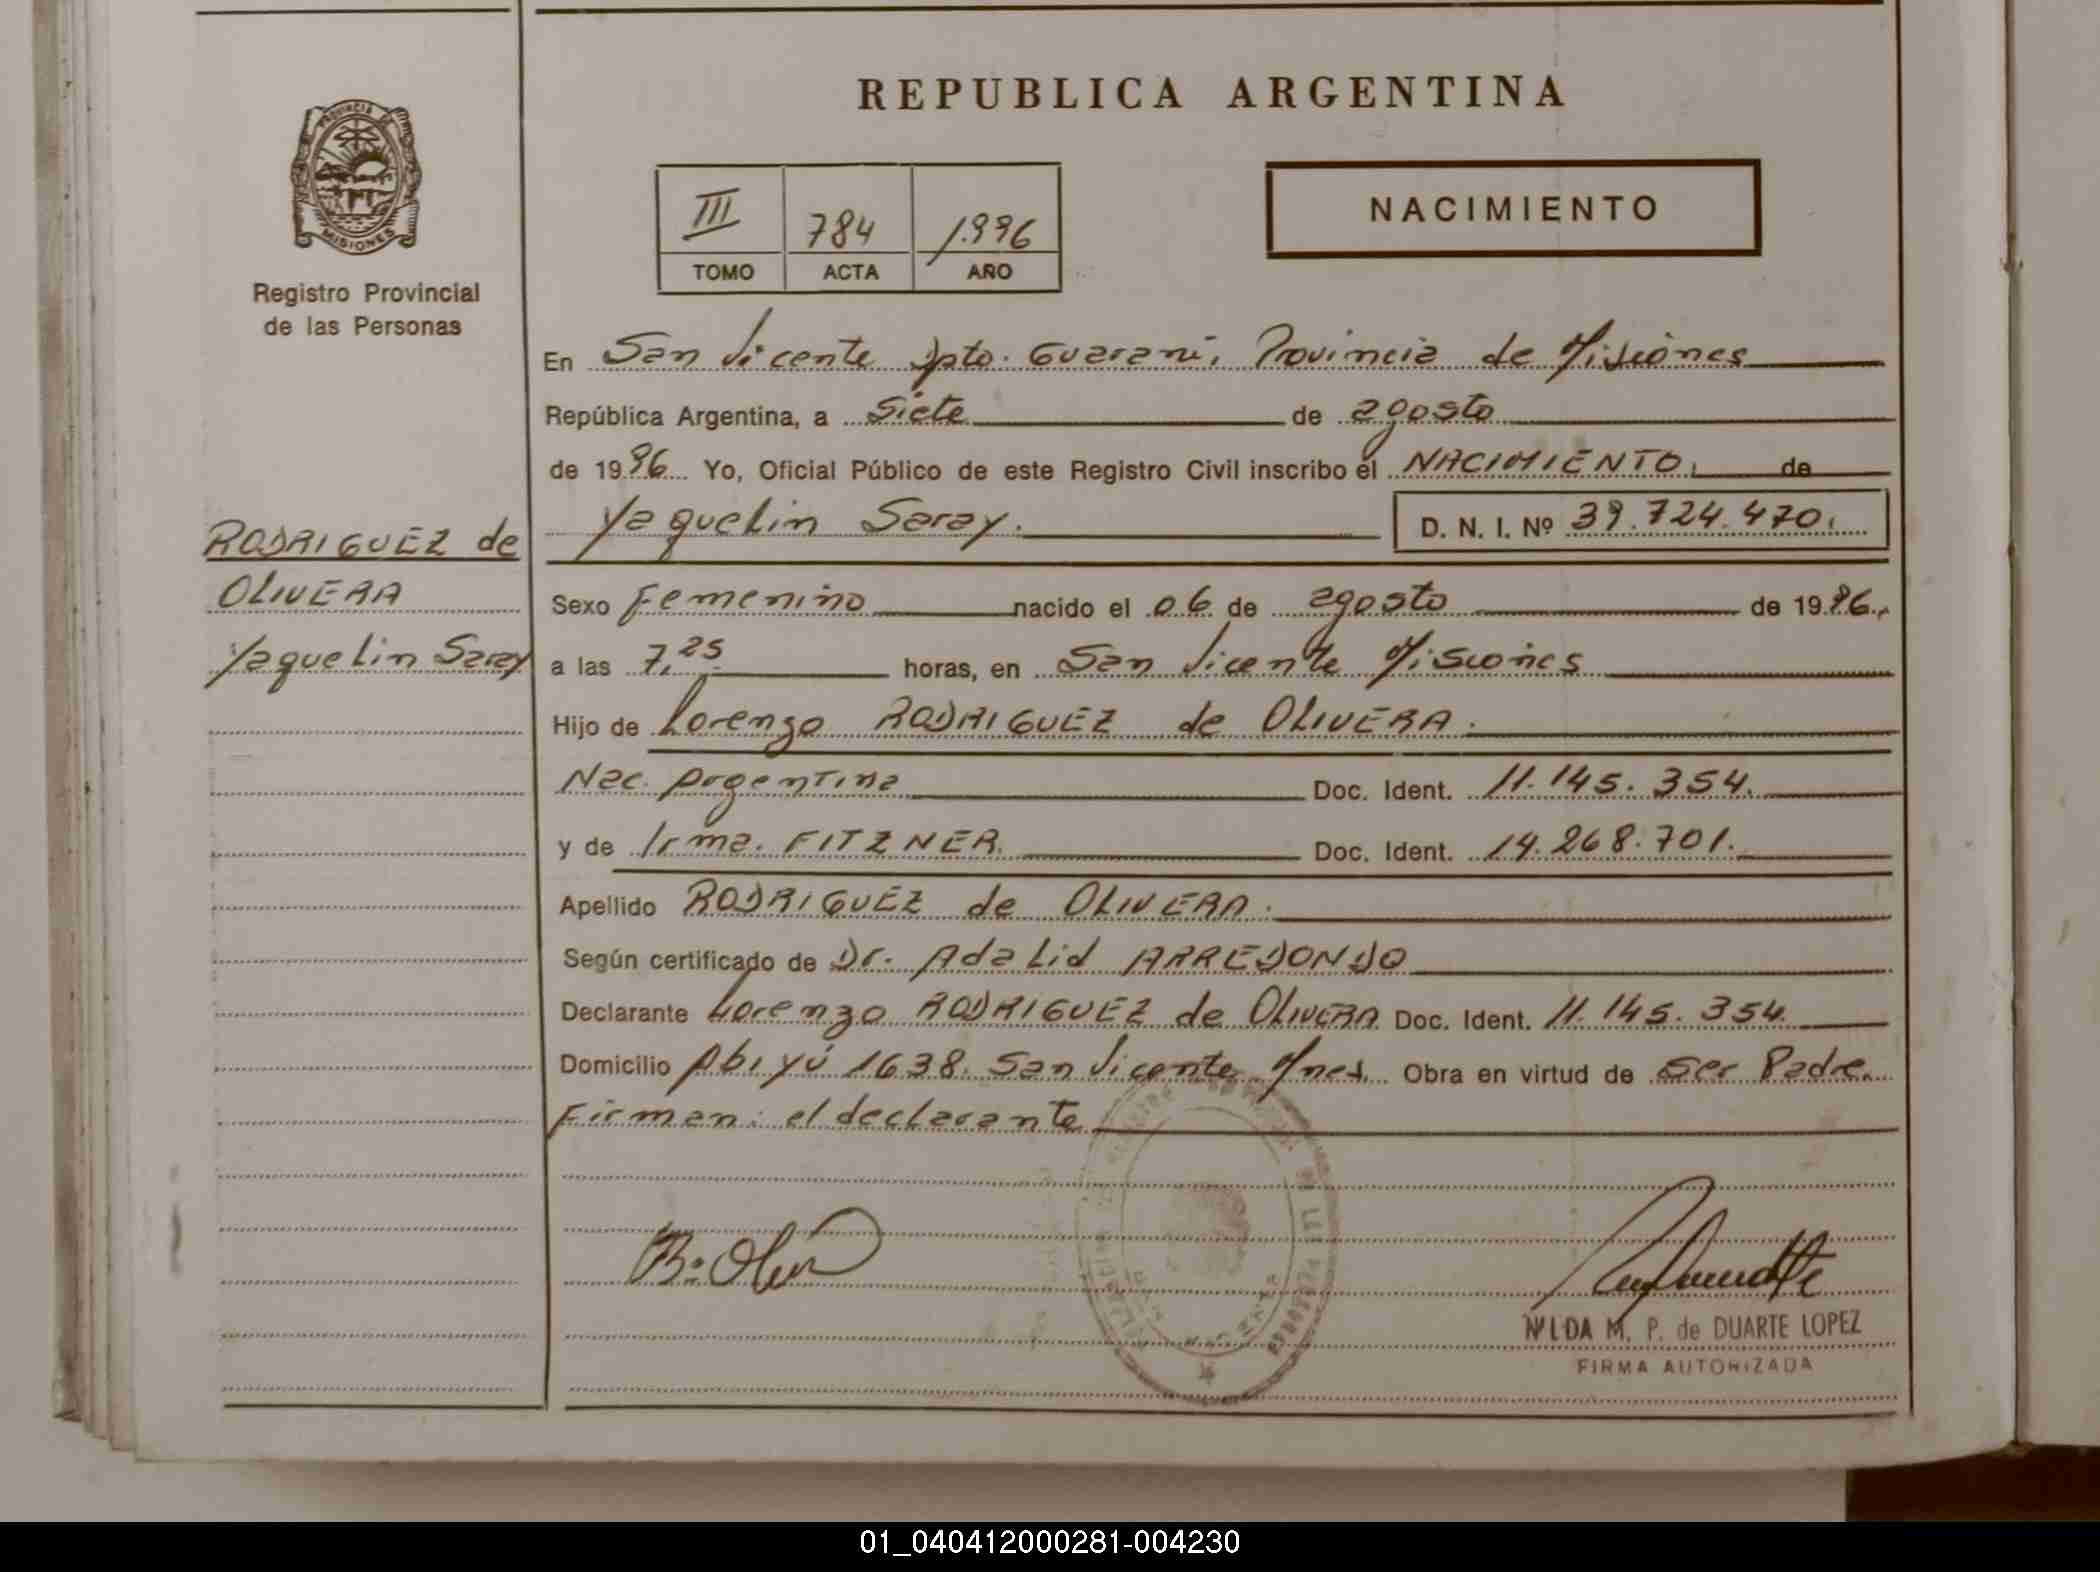 REPUBLICA ARGENTINA
PROVINCIA DE
MISIONES
Registro Provincial
de las Personas
III 784 1.996
TOMO ACTA AÑO
NACIMIENTO
En San Vicente Dpto. Guaraní, Provincia de Misiones
República Argentina, a Siete de agosto
de 1996 Yo, Oficial Público de este Registro Civil inscribo el NACIMIENTO, de
Yaquelin Saray. D. N. I. Nº 39.724.470.
RODRIGUEZ de
OLIVERA
Yaquelin Saray
Sexo Femenino nacido el 06 de agosto de 1996.
a las 7,25 horas, en San Vicente Misiones
Hijo de Lorenzo RODRIGUEZ de OLIVERA.
Nac. Argentina Doc. Ident. 11.145.354.
y de Irma. FITZNER. Doc. Ident. 14.268.701.
Apellido RODRIGUEZ de OLIVERA.
Según certificado de Dr. Adalid ARREDONDO
Declarante Lorenzo RODRIGUEZ de OLIVERA Doc. Ident. 11.145.354.
Domicilio Abiyú 1638. San Vicente Mnes. Obra en virtud de ser Padre.
Firman: el declarante
NILDA M. P. de DUARTE LOPEZ
FIRMA AUTORIZADA
01_040412000281-004230